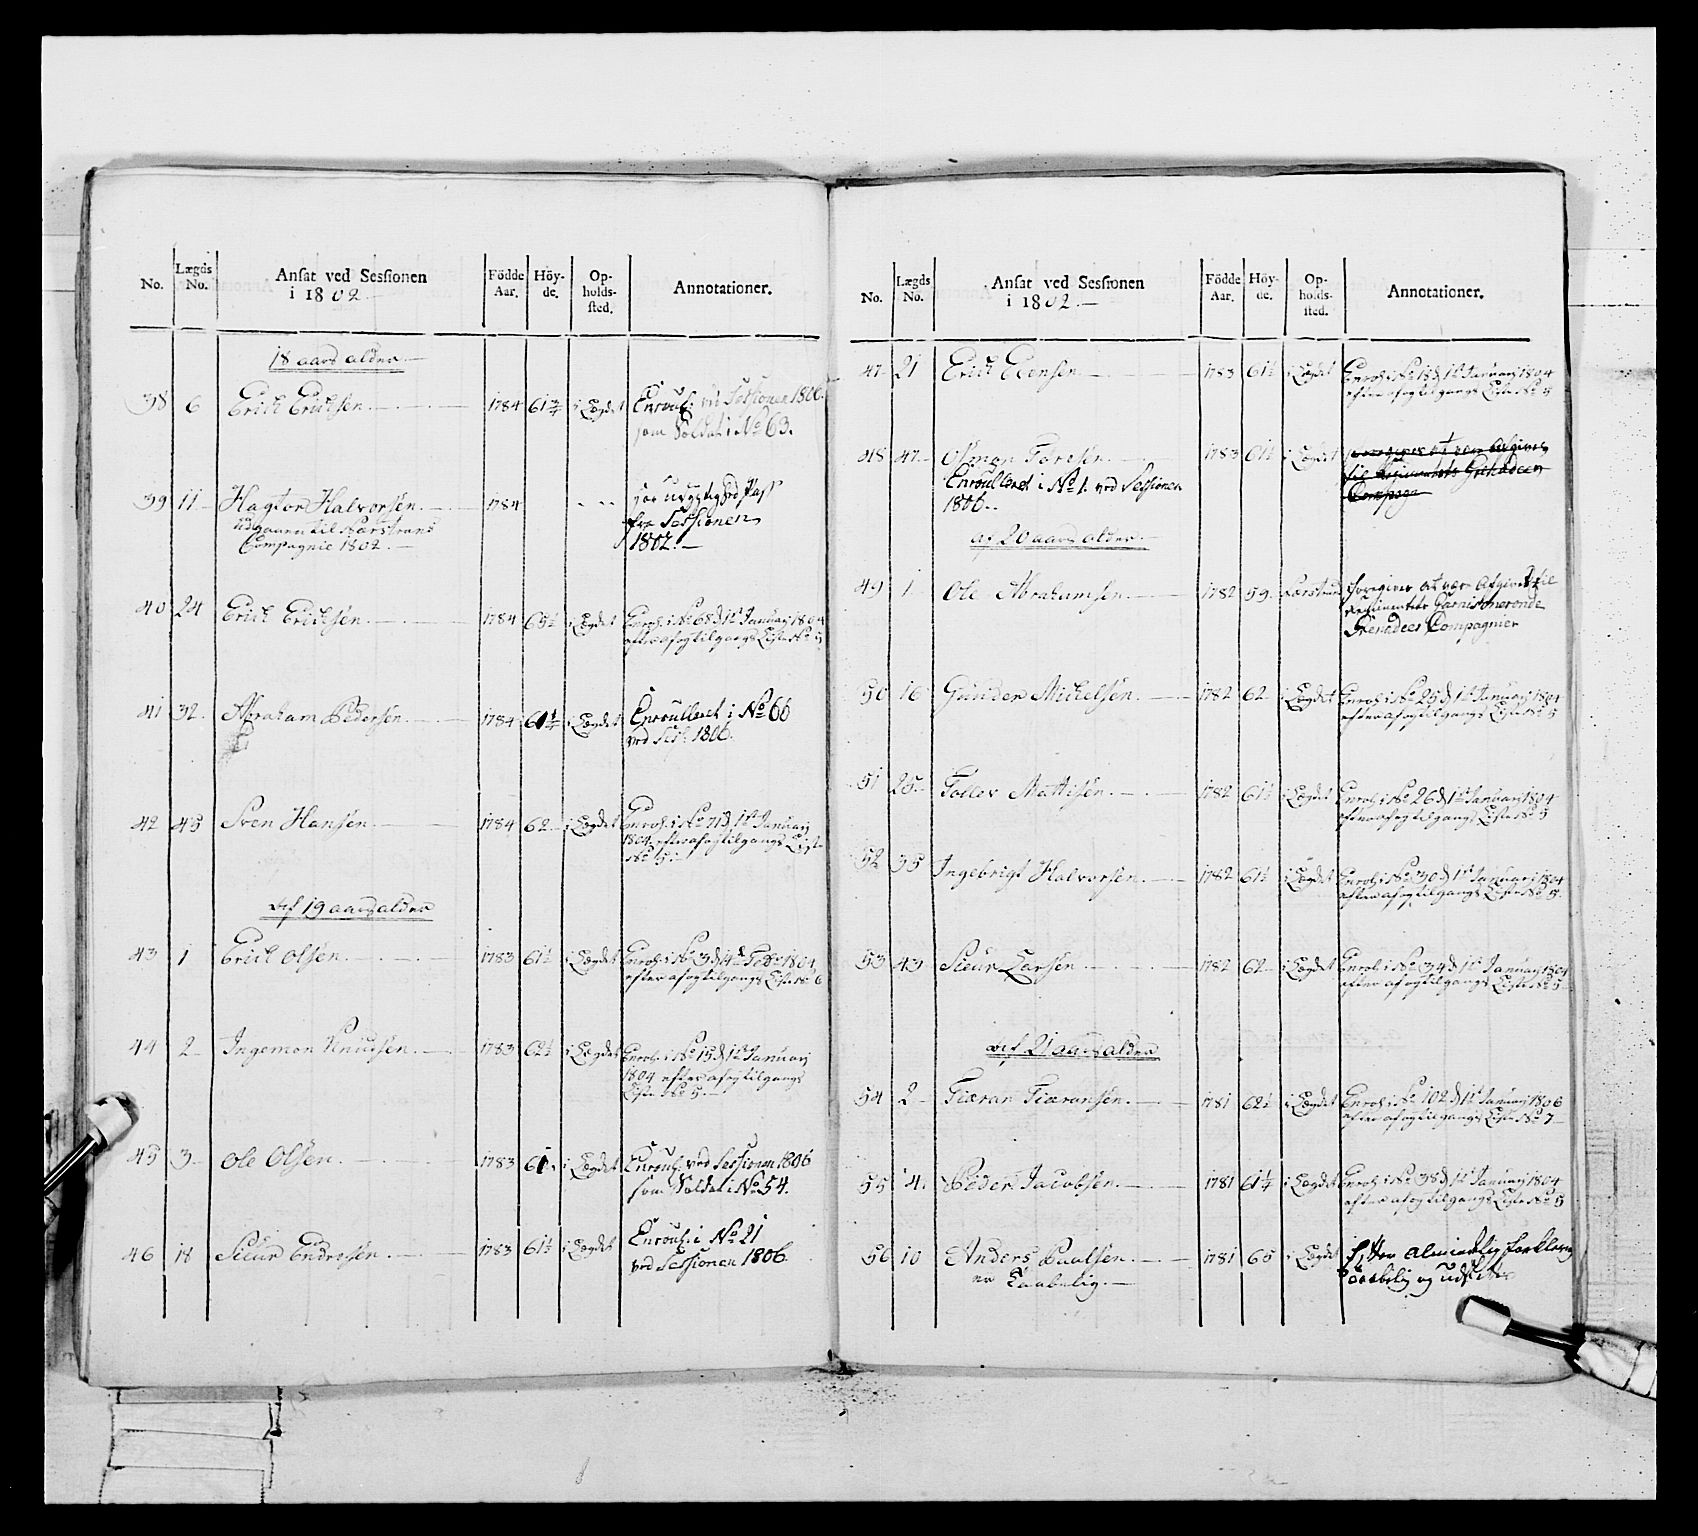 No. Lægds No. Ansat ved Sessionen i 1802 Födde Aar. Höyde. Opholdssted. Annotationer.
18 aars alder
38 6 Erich Erichsen 1784 61 3/4 i Lægdet Enroul: ved Sessionen 1806
som Soldat i No 63.
39 11 Hagtor Halvorsen 1784 - - - for udygtighed Pass
Compagnie 1802. fra Sessionen
1802.
40 24 Erich Erichsen 1784 i Lægdet Enrol: i No 68 d 1st Januarj 1804
efter af og tilgangs Liste No 5
41 32 Abraham Pedersen 1784 i Lægdet Enroulleret i No 66
ved Sess: 1806.
42 45 Sven Hansen 1784 62 i Lægdet Enrol: i No 71 d 1st Januarj
1804 efter af og tilgangs Liste
No 5.
af 19 aars alder
43 1 Erich Olsen 1783 61 1/2 i Lægdet Enrol: i No 3 d 1804
efter af og tilgangs Liste No 6
44 2 Ingemon Knudsen 1783 62 1/2 i Lægdet Enrol: i No 15 d 1st Januarj
1804 efter af og tilgangs
Liste No 5.
45 3 Ole Olsen 1783 i Lægdet Enroul: ved Sessionen 1806
som Soldat i No 54.
46 18 Siur Endresen 1783 61 1/2 i Lægdet Enroul: i No 21
ved Sessionen 1806
No. Lægds No. Ansat ved Sessionen i 1802 Födde Aar. Höyde. Opholdssted. Annotationer.
47 21 Erich 1783 61 1/2 i Lægdet Enrol: i No d 1st Januarj 1804
efter af og tilgangs Liste No 5
48 47 Toresen 1783 61 1/2 i Lægdet
Enroulleret i No 1 ved Sessionen
1806.
af 20 aars alder
49 1 Ole Abrahamsen 1782 59 foregives at være afgivet til
Regimentets
Compagnier
50 16 Gunder Michelsen 1782 62 i Lægdet Enrol: i No 25 d 1st Januarj 1804
efter af og tilgangs Liste No 5
51 25 Tollev Mattisen 1782 61 1/2 i Lægdet Enrol: i No 26 d 1st Januarj 1804
efter af og tilgangs Liste No 5
52 35 Ingebrigt Halvorsen 1782 61 1/2 i Lægdet Enrol: i No 30 d 1st Januarj 1804
efter af og tilgangs Liste No 5.
53 43 Siur Larsen 1782 62 i Lægdet Enrol: i No 34 d 1st Januarj 1804
efter af og tilgangs Liste No 5
af 21 aars alder
54 2 Tiæran Tiæransen 1781 62 1/2 i Lægdet Enrol: i No 102 d 1st Januarj 1806
efter af og tilgangs Liste No 7
55 4 Peder Jacobsen 1781 61 1/4 i Lægdet Enrol: i No 38 d 1st Januarj 1804
efter af og tilgangs Liste No 5
56 10 Anders Paalsen 1781 65 i Lægdet
er Kaabelig.